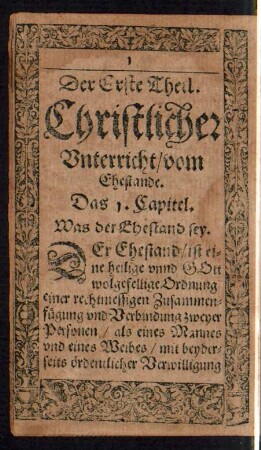 1
Der Erste Theil.
Christlicher
Vnterricht/vom
Ehestande.
Das 1. Capitel.
Was der Ehestand sey.
DEr Ehestand/ist ei-
ne heilige vnnd GOtt
wolgefellige Ordnung
einer rechtmessigen Zusammen-
fügung vnd Verbindung zweyer
Personen/als eines Mannes
vnd eines Weibes/mit beyder-
seits ördentlicher Verwilligung